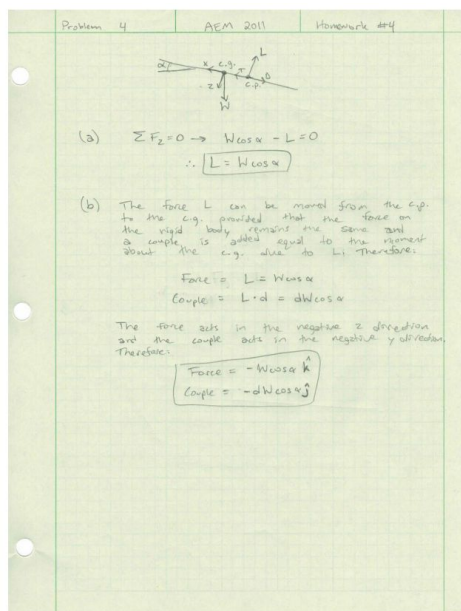 Problem 4 AEM 2011 Homework #4
L
α x c.g. D
z c.p.
W
(a) ΣFz=0 → Wcosα - L = 0
∴ L = Wcosα
(b) The force L can be moved from the c.p.
to the c.g. provided that the force on
the rigid body remains the same and
a couple is added equal to the moment
about the c.g. due to L. Therefore:
Force = L = Wcosα
Couple = L·d = dWcosα
The force acts in the negative z direction
and the couple acts in the negative y direction.
Therefore:
Force = -Wcosα k̂
Couple = -dWcosα ĵ